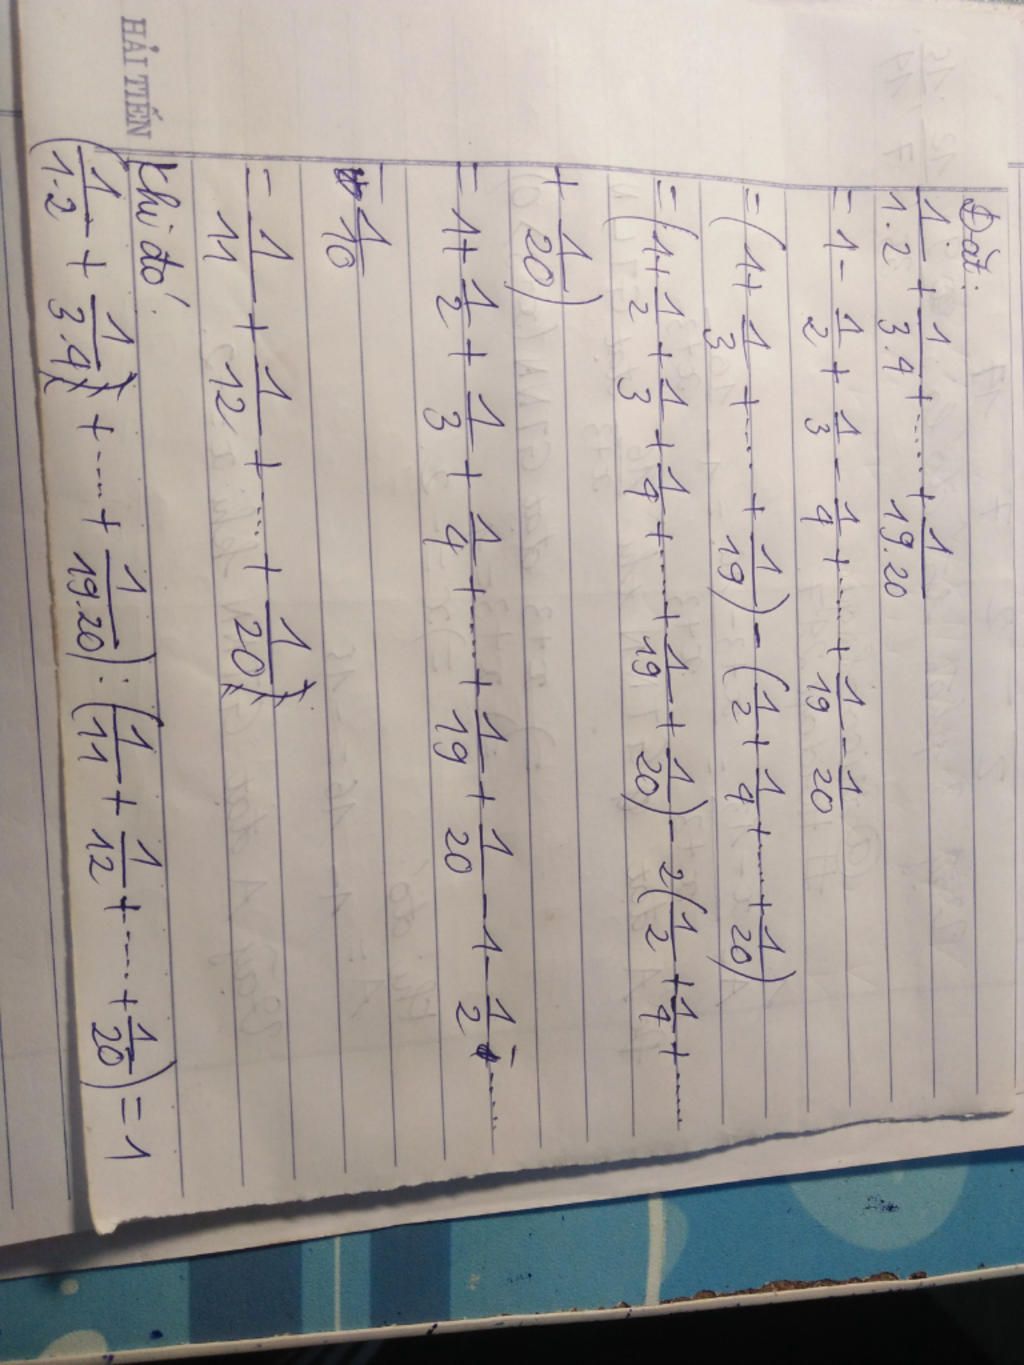 HẢI TIẾN
Đặt:
1/1.2 + 1/3.4 + ..... + 1/19.20
= 1 - 1/2 + 1/3 - 1/4 + ..... + 1/19 - 1/20
= (1 + 1/3 + ..... + 1/19) - (1/2 + 1/4 + ..... + 1/20)
= (1 + 1/2 + 1/3 + 1/4 + ..... + 1/19 + 1/20) - 2(1/2 + 1/4 + .....
+ 1/20)
= 1 + 1/2 + 1/3 + 1/4 + ..... + 1/19 + 1/20 - 1 - 1/2 - .....
- 1/10
= 1/11 + 1/12 + ..... + 1/20
Khi đó:
(1/1.2 + 1/3.4 + ..... + 1/19.20) : (1/11 + 1/12 + ..... + 1/20) = 1